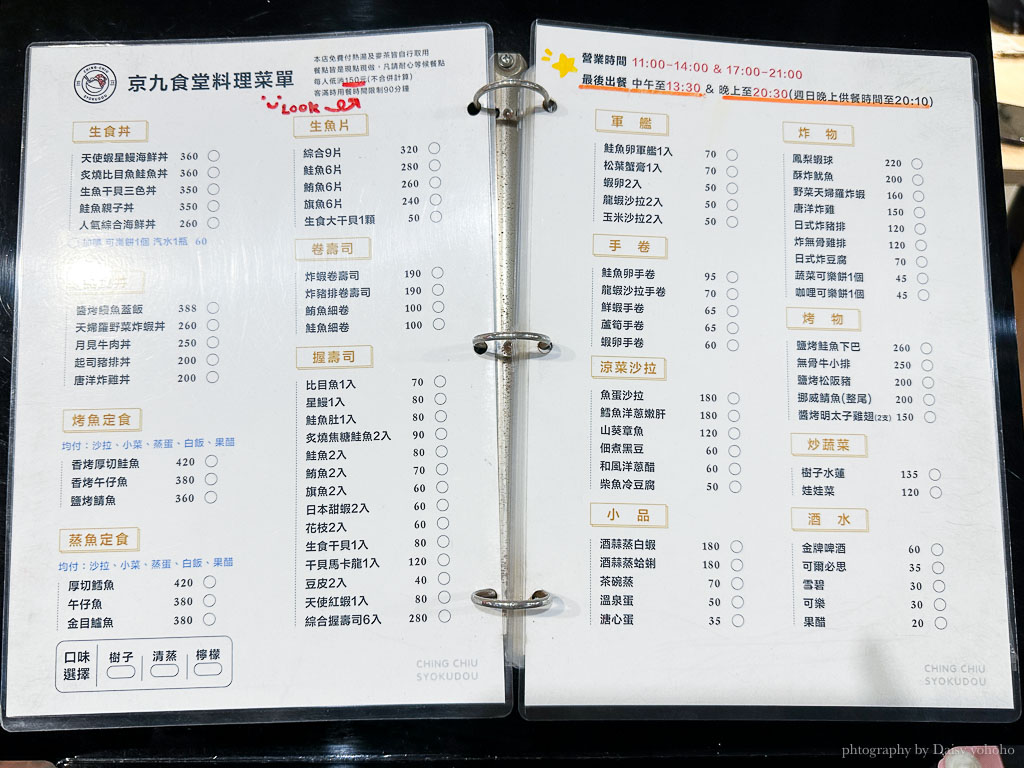 CHING CHIU
SYOKUDOU
京九食堂料理菜單
本店免費付熱湯及麥茶皆自行取用
餐點皆是現點現做，凡請耐心等候餐點
每人低消150元(不合併計算)
客滿時用餐時間限制90分鐘
Look
生食丼
天使蝦星鰻海鮮丼 360
炙燒比目魚鮭魚丼 360
生魚干貝三色丼 350
鮭魚親子丼 350
人氣綜合海鮮丼 260
可樂餅1個 汽水1瓶 60
醬烤鰻魚蓋飯 388
天婦羅野菜炸蝦丼 260
月見牛肉丼 250
起司豬排丼 200
唐洋炸雞丼 200
烤魚定食
均付：沙拉、小菜、蒸蛋、白飯、果醋
香烤厚切鮭魚 420
香烤午仔魚 380
鹽烤鯖魚 360
蒸魚定食
均付：沙拉、小菜、蒸蛋、白飯、果醋
厚切鱈魚 420
午仔魚 380
金目鱸魚 380
口味選擇 樹子 清蒸 檸檬
生魚片
綜合9片 320
鮭魚6片 280
鮪魚6片 260
旗魚6片 240
生食大干貝1顆 50
卷壽司
炸蝦卷壽司 190
炸豬排卷壽司 190
鮪魚細卷 100
鮭魚細卷 100
握壽司
比目魚1入 70
星鰻1入 80
鮭魚肚1入 80
炙燒焦糖鮭魚2入 90
鮭魚2入 80
鮪魚2入 70
旗魚2入 60
日本甜蝦2入 60
花枝2入 60
生食干貝1入 80
干貝馬卡龍1入 120
豆皮2入 40
天使紅蝦1入 80
綜合握壽司6入 280
CHING CHIU
SYOKUDOU
營業時間 11:00-14:00 & 17:00-21:00
最後出餐 中午至13:30 & 晚上至20:30(週日晚上供餐時間至20:10)
軍艦
鮭魚卵軍艦1入 70
松葉蟹膏1入 70
蝦卵2入 50
龍蝦沙拉2入 50
玉米沙拉2入 50
手卷
鮭魚卵手卷 95
龍蝦沙拉手卷 70
鮮蝦手卷 65
蘆筍手卷 65
蝦卵手卷 60
涼菜沙拉
魚蛋沙拉 180
鱈魚洋蔥嫩肝 180
山葵章魚 120
佃煮黑豆 60
和風洋蔥醋 60
柴魚冷豆腐 50
小品
酒蒜蒸白蝦 180
酒蒜蒸蛤蜊 180
茶碗蒸 70
溫泉蛋 50
溏心蛋 35
炸物
鳳梨蝦球 220
酥炸魷魚 200
野菜天婦羅炸蝦 160
唐洋炸雞 150
日式炸豬排 120
炸無骨雞排 120
日式炸豆腐 70
蔬菜可樂餅1個 45
咖哩可樂餅1個 45
烤物
鹽烤鮭魚下巴 260
無骨牛小排 250
鹽烤松阪豬 200
挪威鯖魚(整尾) 200
醬烤明太子雞翅(2支) 150
炒蔬菜
樹子水蓮 135
娃娃菜 120
酒水
金牌啤酒 60
可爾必思 35
雪碧 30
可樂 30
果醋 20
CHING CHIU
SYOKUDOU
photography by Daisy yohoho